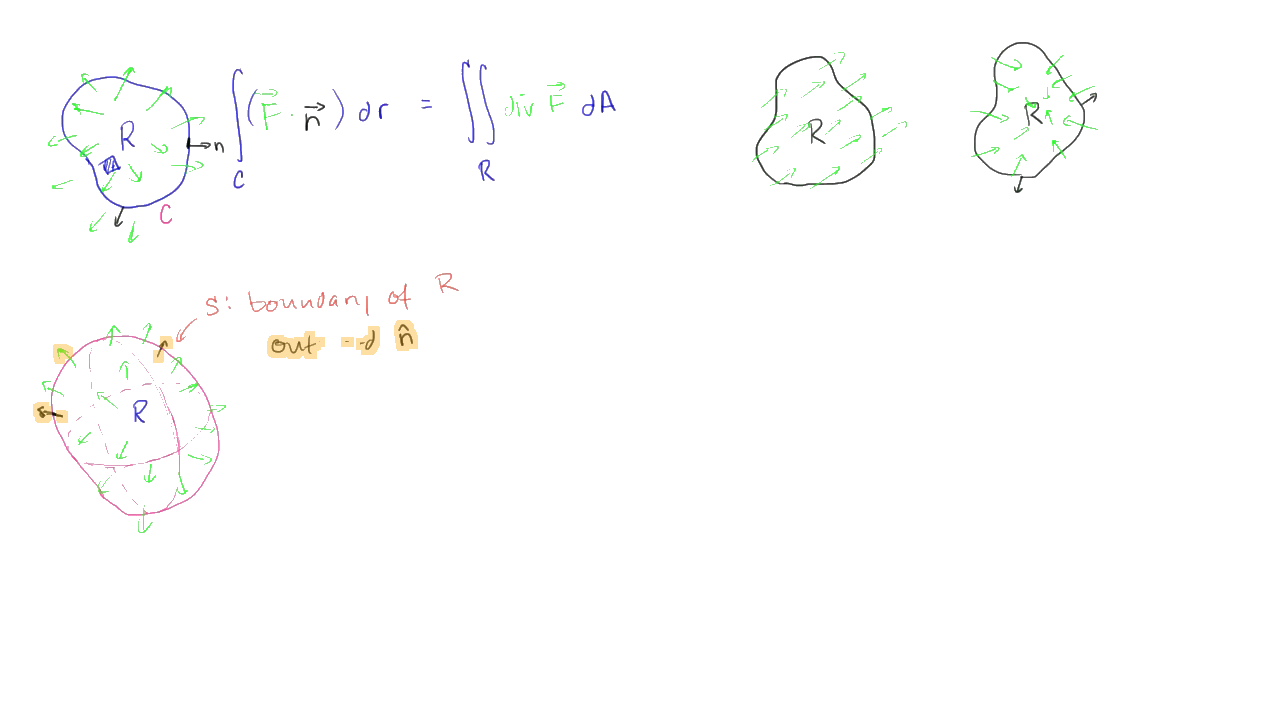 R
n
C
∫_C (F⃗ · n⃗) dr = ∬_R div F⃗ dA
R
R
S: boundary of R
out --d n̂
R